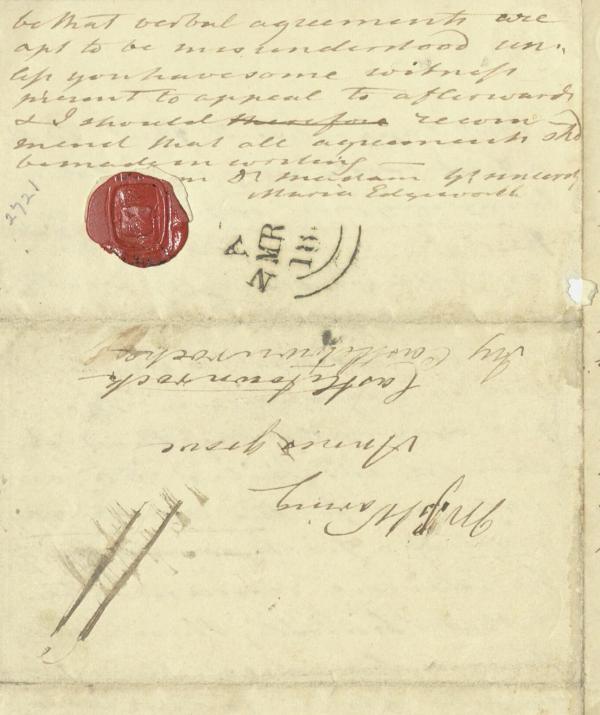 be that verbal agreements are
apt to be misunderstood un-
less you have some witness
present to appeal to afterwards
& I should therefore recom
mend that all agreements shd
be made in writing
am Dr madam yr sincerely
Maria Edgeworth
2721
A
MR
N
18
Mrs Waring
Annes grove
Castletownroche
by Castletownroche